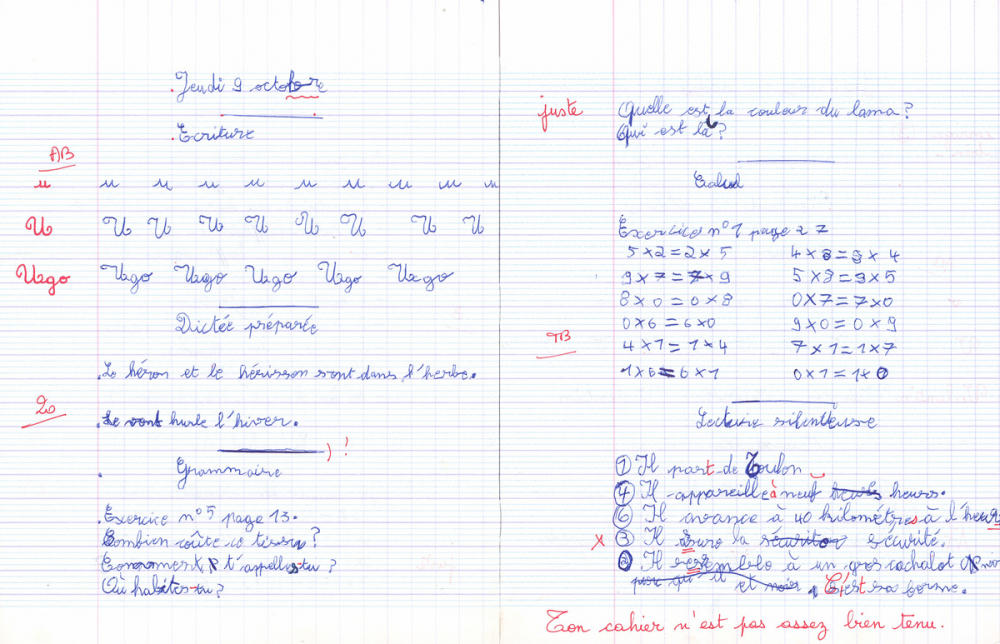 Jeudi 9 octobre
Ecriture
AB
u u u u u u u u u u
U U U U U U U U U
Ugo Ugo Ugo Ugo Ugo Ugo
Dictée préparée
Le héron et le hérisson sont dans l'herbe.
20
Le vent hurle l'hiver.
) !
Grammaire
Exercice n°5 page 13.
Combien coûte ce tissu ?
t'appelles-tu ?
Où habites-tu ?
juste
Quelle est la couleur du lama ?
Qui est là ?
Calcul
Exercice n°1 page 27
5×2=2×5 4×8=8×4
9×7=7×9 5×3=3×5
8×0=0×8 0×7=7×0
0×6=6×0 9×0=0×9
TB
4×1=1×4 7×1=1×7
1×6=6×1 0×1=1×0
Lecture silentieuse
① Il part de Toulon
④ Il appareille à neuf heures heures.
⑥ Il avance à 40 kilomètres à l'heure
X ③ Il assure la sécurité.
② Il ressemble à un gros cachalot noir
C'est sa forme.
Ton cahier n'est pas assez bien tenu.